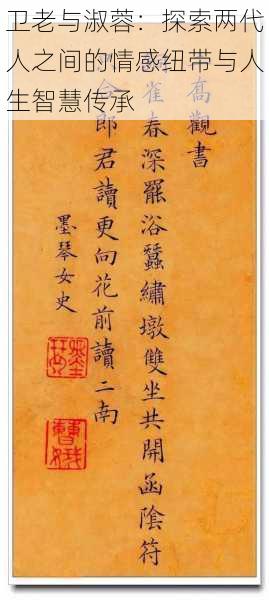 卫老与淑蓉：探索两代
人之间的情感纽带与人
生智慧传承
高觀書
雀春深罷浴蠶繡墩雙坐共開函陰符
合郎君讀更向花前讀二南
墨琴女史